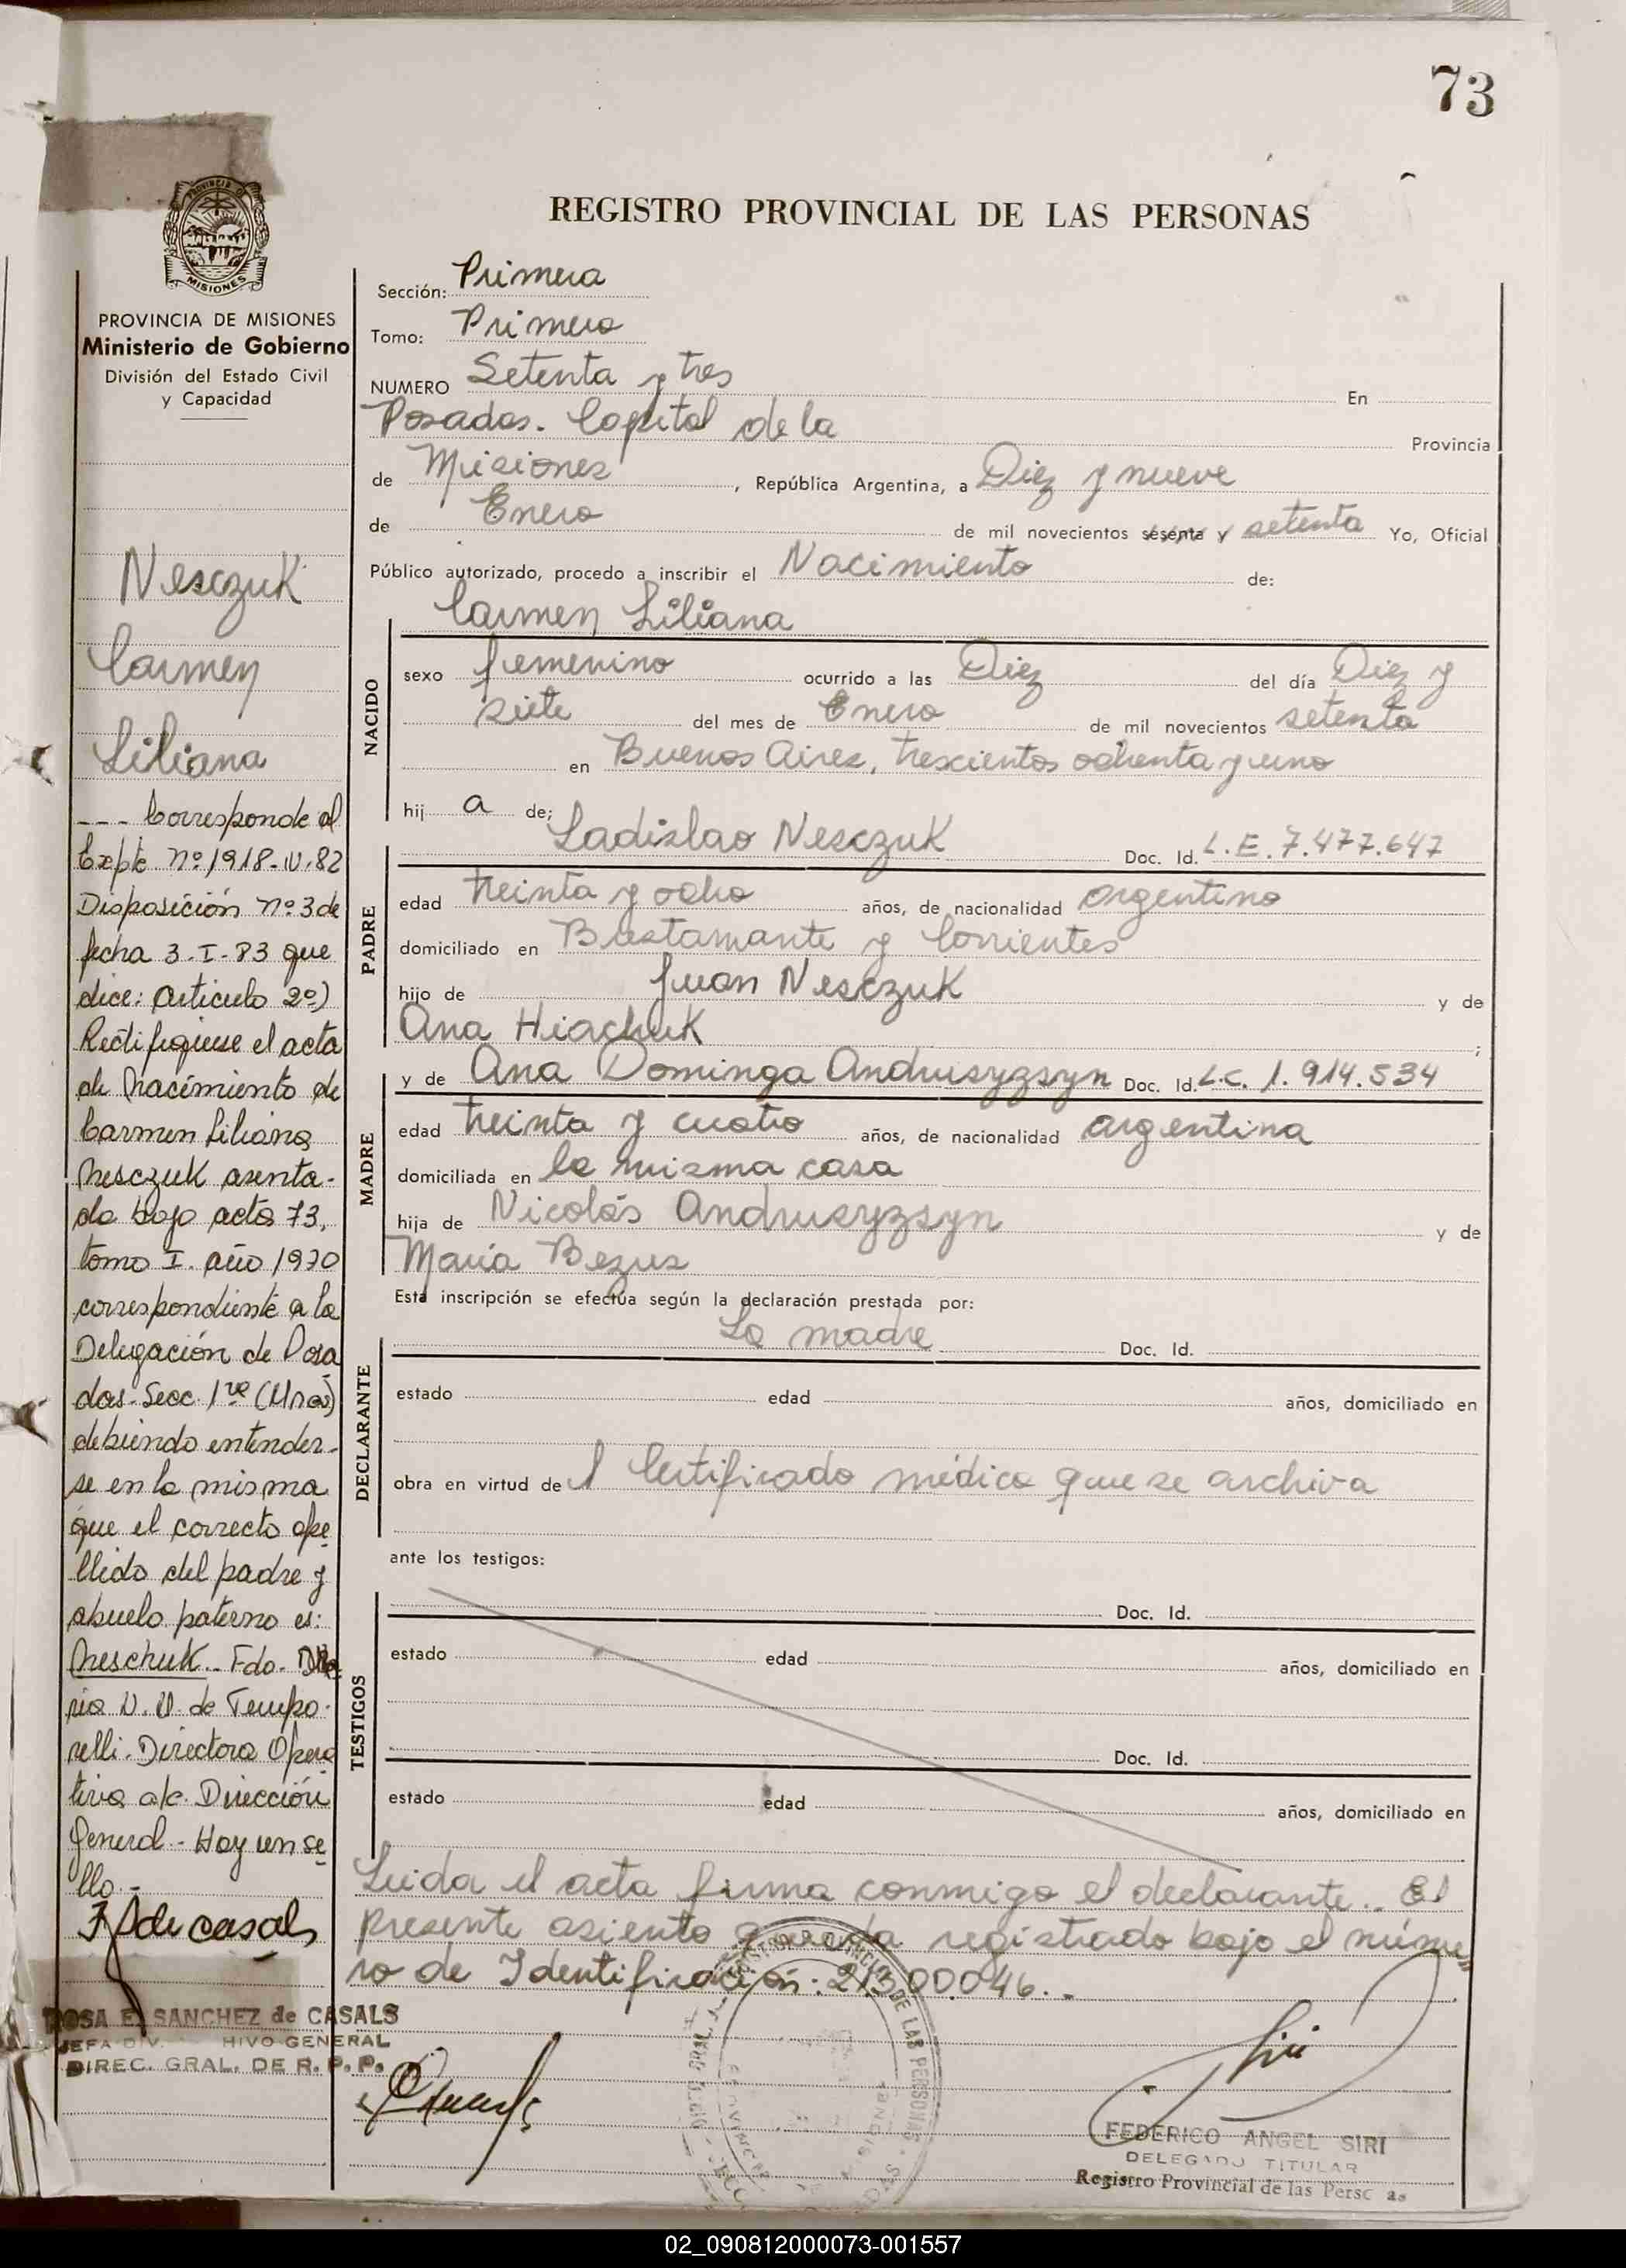 73
REGISTRO PROVINCIAL DE LAS PERSONAS
PROVINCIA DE MISIONES
Ministerio de Gobierno
División del Estado Civil
y Capacidad
Nesczuk
Carmen
Liliana
--- Corresponde al
Expte nº 1918-N-82
Disposición nº 3 de
fecha 3-I-83 que
dice: Artículo 2º)
Rectifíquese el acta
de nacimiento de
Carmen Liliana
Nesczuk asenta-
da bajo acta 73,
tomo I. año 1970
correspondiente a la
Delegación de Posa
das-Secc. 1ra (Una)
debiendo entender-
se en la misma
que el correcto ape
llido del padre y
abuelo paterno es:
Neschuk.- Fdo.
de Tempo-
relli. Directora Opera
tiva a/c. Dirección
General - Hay un se
llo.-
de casals
ROSA E. SANCHEZ de CASALS
JEFA DIV. HIVO GENERAL
DIREC. GRAL. DE R. P. P.
Sección: Primera
Tomo: Primero
NUMERO Setenta y tres En
Posadas. Capital de la Provincia
de Misiones, República Argentina, a Diez y nueve
de Enero de mil novecientos sesenta y setenta Yo, Oficial
Público autorizado, procedo a inscribir el Nacimiento de:
Carmen Liliana
NACIDO
sexo femenino ocurrido a las Diez del día Diez y
siete del mes de Enero de mil novecientos setenta
en Buenos Aires, trescientos ochenta y uno
hij a de;
Ladislao Nesczuk Doc. Id. L.E. 7.477.647
PADRE
edad treinta y ocho años, de nacionalidad argentino
domiciliado en Bustamante y Corrientes
hijo de Juan Nesczuk y de
Ana Hiachuk ;
y de Ana Dominga Andrusyzsyn Doc. Id. L.C. 1.914.534
MADRE
edad treinta y cuatro años, de nacionalidad argentina
domiciliada en la misma casa
hija de Nicolás Andrusyzsyn y de
María Bezus
Esta inscripción se efectúa según la declaración prestada por:
La madre Doc. Id.
DECLARANTE
estado edad años, domiciliado en
obra en virtud de l Certificado médico que se archiva
ante los testigos:
Doc. Id.
TESTIGOS
estado edad años, domiciliado en
Doc. Id.
estado edad años, domiciliado en
Leida el acta firma conmigo el declarante.. El
presente asiento queda registrado bajo el núme
ro de Identificación: 21300.046..-
FEDERICO ANGEL SIRI
DELEGADO TITULAR
Registro Provincial de las Persc as
02_090812000073-001557